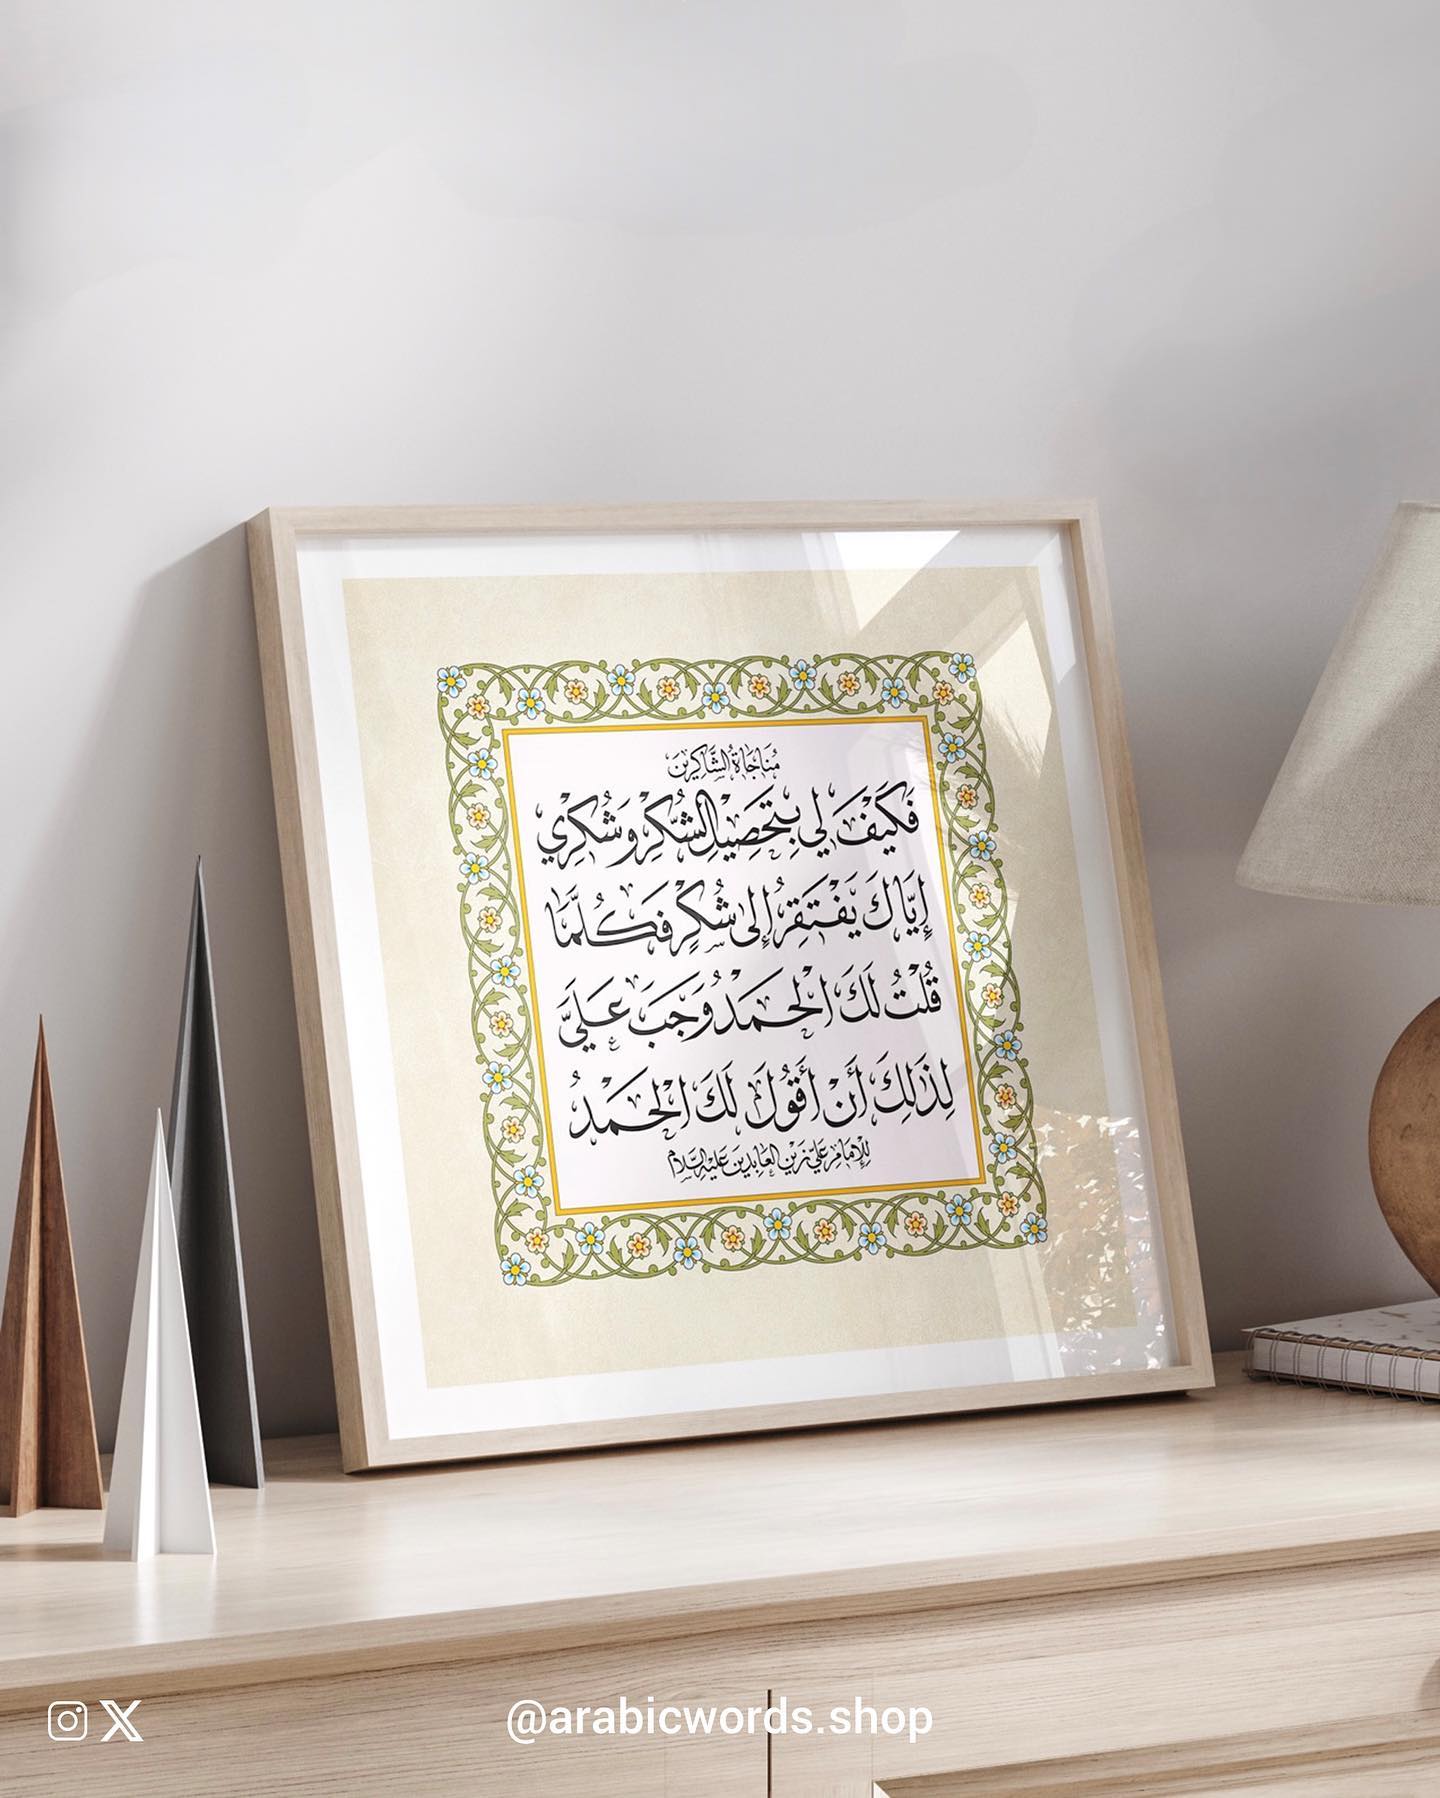 مُنَاجَاةُ الشَّاكِرِينَ
فَكَيْفَ لِي بِتَحْصِيلِ الشُّكْرِ وَشُكْرِي
إِيَّاكَ يَفْتَقِرُ إِلَى شُكْرٍ فَكُلَّمَا
قُلْتُ لَكَ الْحَمْدُ وَجَبَ عَلَيَّ
لِذَلِكَ أَنْ أَقُولَ لَكَ الْحَمْدُ
لِلْإِمَامِ عَلِيّ زَيْنِ الْعَابِدِينَ عَلَيْهِ السَّلَامُ
@arabicwords.shop